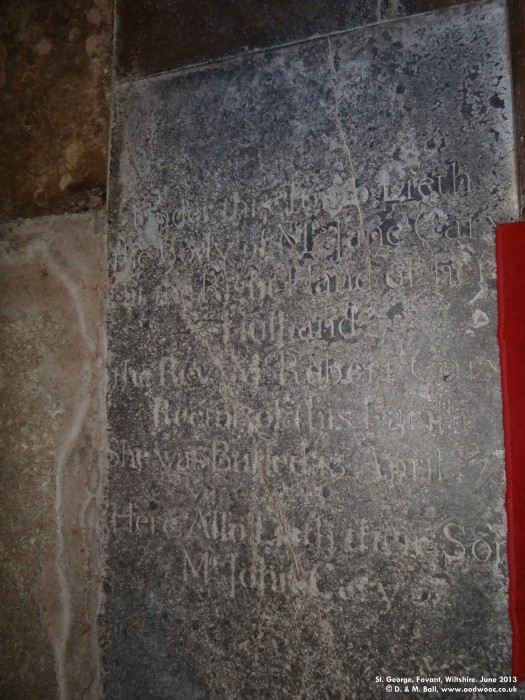 Under this Tomb Lieth
the Body of Mrs Jane Cary
on the Right Hand of her
Husband
the Revd Mr Robert Cary
Rector of this Parish
She was Buried 13 April 17
Here Also Lieth their Son
Mr John Cary
St. George, Fovant, Wiltshire. June 2013
© D. & M. Ball, www.oodwooc.co.uk